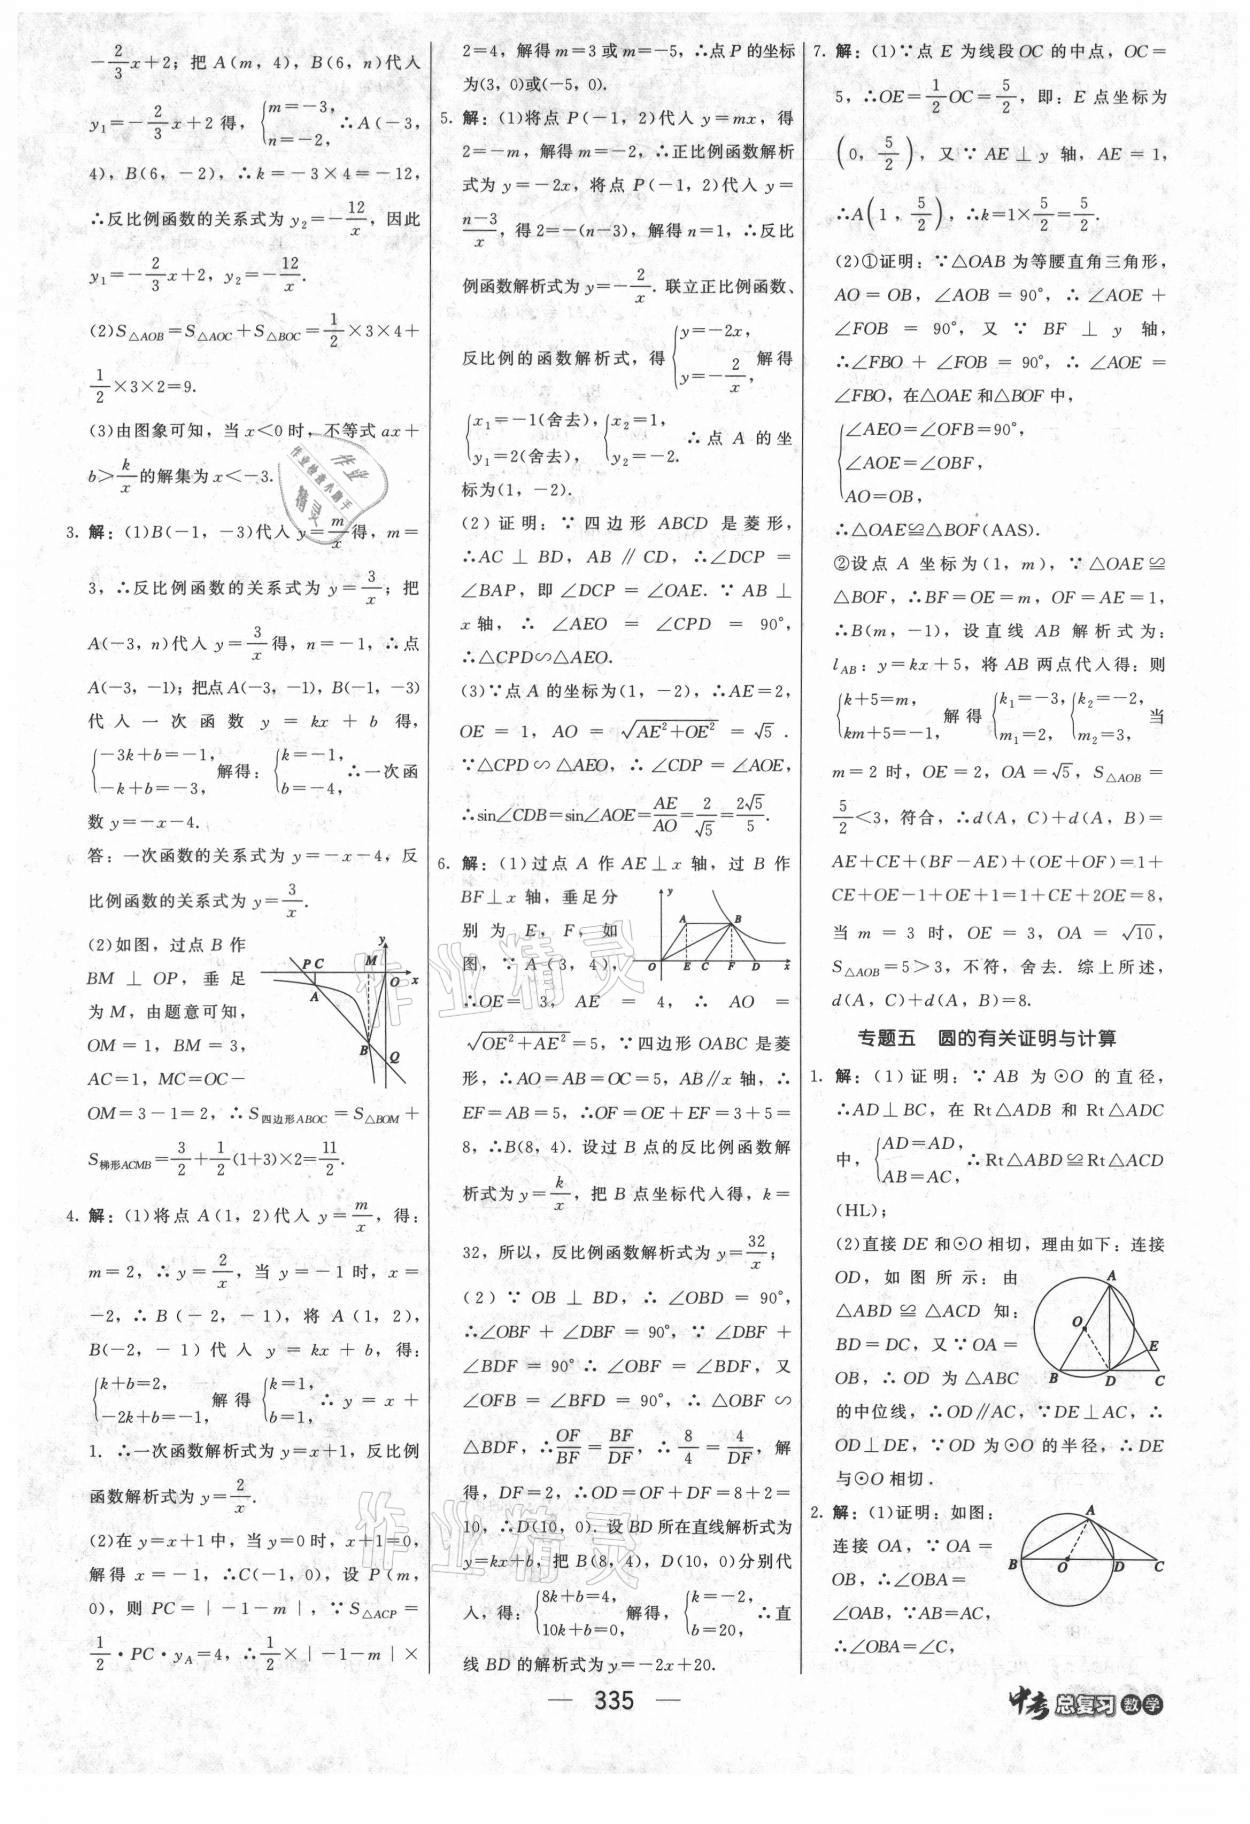 -2/3x+2；把 A(m，4)，B(6，n)代入
y₁=-2/3x+2 得，{m=-3，n=-2，∴A(-3，
4)，B(6，-2)，∴k=-3×4=-12，
∴反比例函数的关系式为 y₂=-12/x，因此
y₁=-2/3x+2，y₂=-12/x.
(2)S△AOB=S△AOC+S△BOC=1/2×3×4+
1/2×3×2=9.
(3)由图象可知，当 x<0 时，不等式 ax+
b>k/x的解集为 x<-3.
3. 解：(1)B(-1，-3)代入 y=m/x得，m=
3，∴反比例函数的关系式为 y=3/x；把
A(-3，n)代入 y=3/x得，n=-1，∴点
A(-3，-1)；把点 A(-3，-1)，B(-1，-3)
代入一次函数 y=kx+b 得，
{-3k+b=-1，-k+b=-3，解得：{k=-1，b=-4，∴一次函
数 y=-x-4.
答：一次函数的关系式为 y=-x-4，反
比例函数的关系式为 y=3/x.
(2)如图，过点 B 作
BM⊥OP，垂足
为 M，由题意可知，
OM=1，BM=3，
AC=1，MC=OC-
OM=3-1=2，∴S四边形ABOC=S△BOM+
S梯形ACMB=3/2+1/2(1+3)×2=11/2.
P C M y O x A B Q
4. 解：(1)将点 A(1，2)代入 y=m/x，得：
m=2，∴y=2/x，当 y=-1 时，x=
-2，∴B(-2，-1)，将 A(1，2)，
B(-2，-1)代入 y=kx+b，得：
{k+b=2，-2k+b=-1，解得{k=1，b=1，∴y=x+
1. ∴一次函数解析式为 y=x+1，反比例
函数解析式为 y=2/x.
(2)在 y=x+1 中，当 y=0 时，x+1=0，
解得 x=-1，∴C(-1，0)，设 P(m，
0)，则 PC=|-1-m|，∵S△ACP=
1/2·PC·yA=4，∴1/2×|-1-m|×
2=4，解得 m=3 或 m=-5，∴点 P 的坐标
为(3，0)或(-5，0).
5. 解：(1)将点 P(-1，2)代入 y=mx，得
2=-m，解得 m=-2，∴正比例函数解析
式为 y=-2x，将点 P(-1，2)代入 y=
n-3/x，得 2=-(n-3)，解得 n=1，∴反比
例函数解析式为 y=-2/x. 联立正比例函数、
反比例的函数解析式，得{y=-2x，y=-2/x，解得
{x₁=-1(舍去)，y₁=2(舍去)，{x₂=1，y₂=-2. ∴点 A 的坐
标为(1，-2).
(2)证明：∵四边形 ABCD 是菱形，
∴AC⊥BD，AB∥CD，∴∠DCP=
∠BAP，即∠DCP=∠OAE. ∵AB⊥
x 轴，∴∠AEO=∠CPD=90°，
∴△CPD∽△AEO.
(3)∵点 A 的坐标为(1，-2)，∴AE=2，
OE=1，AO=√(AE²+OE²)=√5.
∵△CPD∽△AEO，∴∠CDP=∠AOE，
∴sin∠CDB=sin∠AOE=AE/AO=2/√5=2√5/5.
6. 解：(1)过点 A 作 AE⊥x 轴，过 B 作
BF⊥x 轴，垂足分
别为 E，F，如
图，∵A(3，4)，
y A B O E C F D x
∴OE=3，AE=4，∴AO=
√(OE²+AE²)=5，∵四边形 OABC 是菱
形，∴AO=AB=OC=5，AB∥x 轴，∴
EF=AB=5，∴OF=OE+EF=3+5=
8，∴B(8，4). 设过 B 点的反比例函数解
析式为 y=k/x，把 B 点坐标代入得，k=
32，所以，反比例函数解析式为 y=32/x；
(2)∵OB⊥BD，∴∠OBD=90°，
∴∠OBF+∠DBF=90°，∵∠DBF+
∠BDF=90°∴∠OBF=∠BDF，又
∠OFB=∠BFD=90°，∴△OBF∽
△BDF，∴OF/BF=BF/DF，∴8/4=4/DF，解
得，DF=2，∴OD=OF+DF=8+2=
10，∴D(10，0). 设 BD 所在直线解析式为
y=kx+b，把 B(8，4)，D(10，0)分别代
入，得：{8k+b=4，10k+b=0，解得，{k=-2，b=20，∴直
线 BD 的解析式为 y=-2x+20.
7. 解：(1)∵点 E 为线段 OC 的中点，OC=
5，∴OE=1/2OC=5/2，即：E 点坐标为
(0，5/2)，又∵AE⊥y 轴，AE=1，
∴A(1，5/2)，∴k=1×5/2=5/2.
(2)①证明：∵△OAB 为等腰直角三角形，
AO=OB，∠AOB=90°，∴∠AOE+
∠FOB=90°，又∵BF⊥y 轴，
∴∠FBO+∠FOB=90°，∴∠AOE=
∠FBO，在△OAE 和△BOF 中，
{∠AEO=∠OFB=90°，
∠AOE=∠OBF，
AO=OB，
∴△OAE≌△BOF(AAS).
②设点 A 坐标为(1，m)，∵△OAE≌
△BOF，∴BF=OE=m，OF=AE=1，
∴B(m，-1)，设直线 AB 解析式为：
lAB：y=kx+5，将 AB 两点代入得：则
{k+5=m，km+5=-1，解得{k₁=-3，m₁=2，{k₂=-2，m₂=3，当
m=2 时，OE=2，OA=√5，S△AOB=
5/2<3，符合，∴d(A，C)+d(A，B)=
AE+CE+(BF-AE)+(OE+OF)=1+
CE+OE-1+OE+1=1+CE+2OE=8，
当 m=3 时，OE=3，OA=√10，
S△AOB=5>3，不符，舍去. 综上所述，
d(A，C)+d(A，B)=8.
专题五 圆的有关证明与计算
1. 解：(1)证明：∵AB 为⊙O 的直径，
∴AD⊥BC，在 Rt△ADB 和 Rt△ADC
中，{AD=AD，AB=AC，∴Rt△ABD≌Rt△ACD
(HL)；
(2)直接 DE 和⊙O 相切，理由如下：连接
OD，如图所示：由
△ABD≌△ACD 知：
BD=DC，又∵OA=
OB，∴OD 为△ABC
的中位线，∴OD∥AC，∵DE⊥AC，∴
OD⊥DE，∵OD 为⊙O 的半径，∴DE
与⊙O 相切.
A O E B D C
2. 解：(1)证明：如图：
连接 OA，∵OA=
OB，∴∠OBA=
∠OAB，∵AB=AC，
∴∠OBA=∠C，
A B O D C
作业
作业检查小助手
精灵
作业精灵
作业精灵
— 335 —
中考 总复习 数学